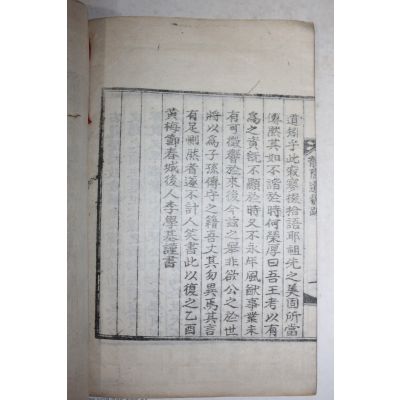 道矧于此寂寥後拾語耶祖先之美固所當
僾然其如不諧於時何榮厚曰吾王考以有
爲之資旣不顯於時又不永年風猷事業未
有可徵嚮於來後今玆之舉非欲公之於世
將以爲子孫傳守之籍吾丈其勿異焉其言
有足惻然者遂不計人笑書此以復之乙酉
黃梅節春城後人李學基謹書